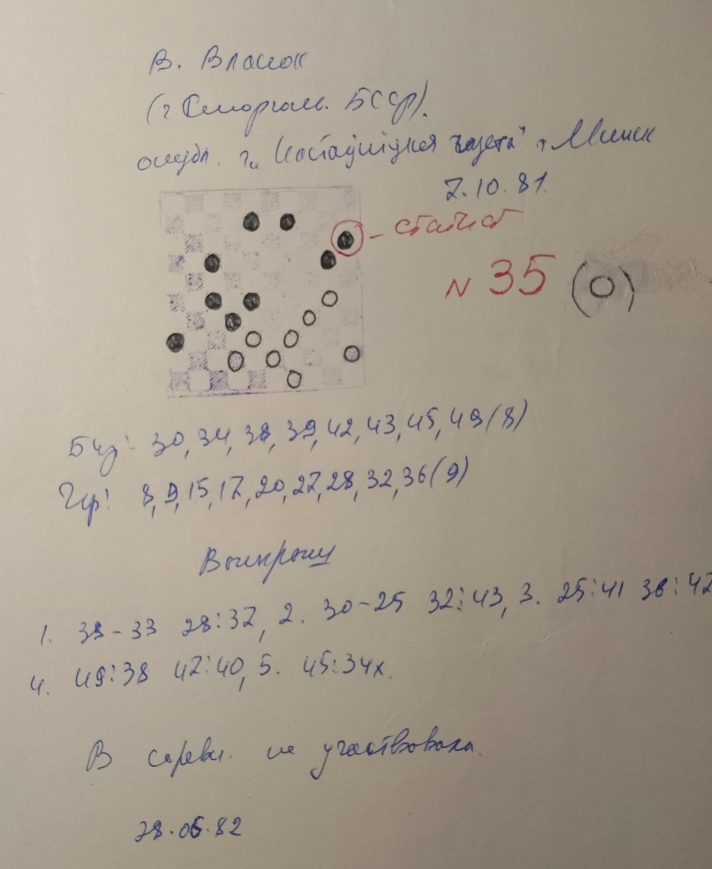 В. Власюк
(г Сморгонь БССР).
опубл. г. "Настаўніцкая газета" г. Минск
7.10.81
- статист
N 35 (О)
Бел: 30, 34, 38, 39, 42, 43, 45, 49 (8)
Чер: 8, 9, 15, 17, 20, 27, 28, 32, 36 (9)
Выигрыш
1. 38-33 28:37, 2. 30-25 32:43, 3. 25:41 36:47
4. 49:38 47:40, 5. 45:34х.
В соревн. не участвовала.
28.06.82